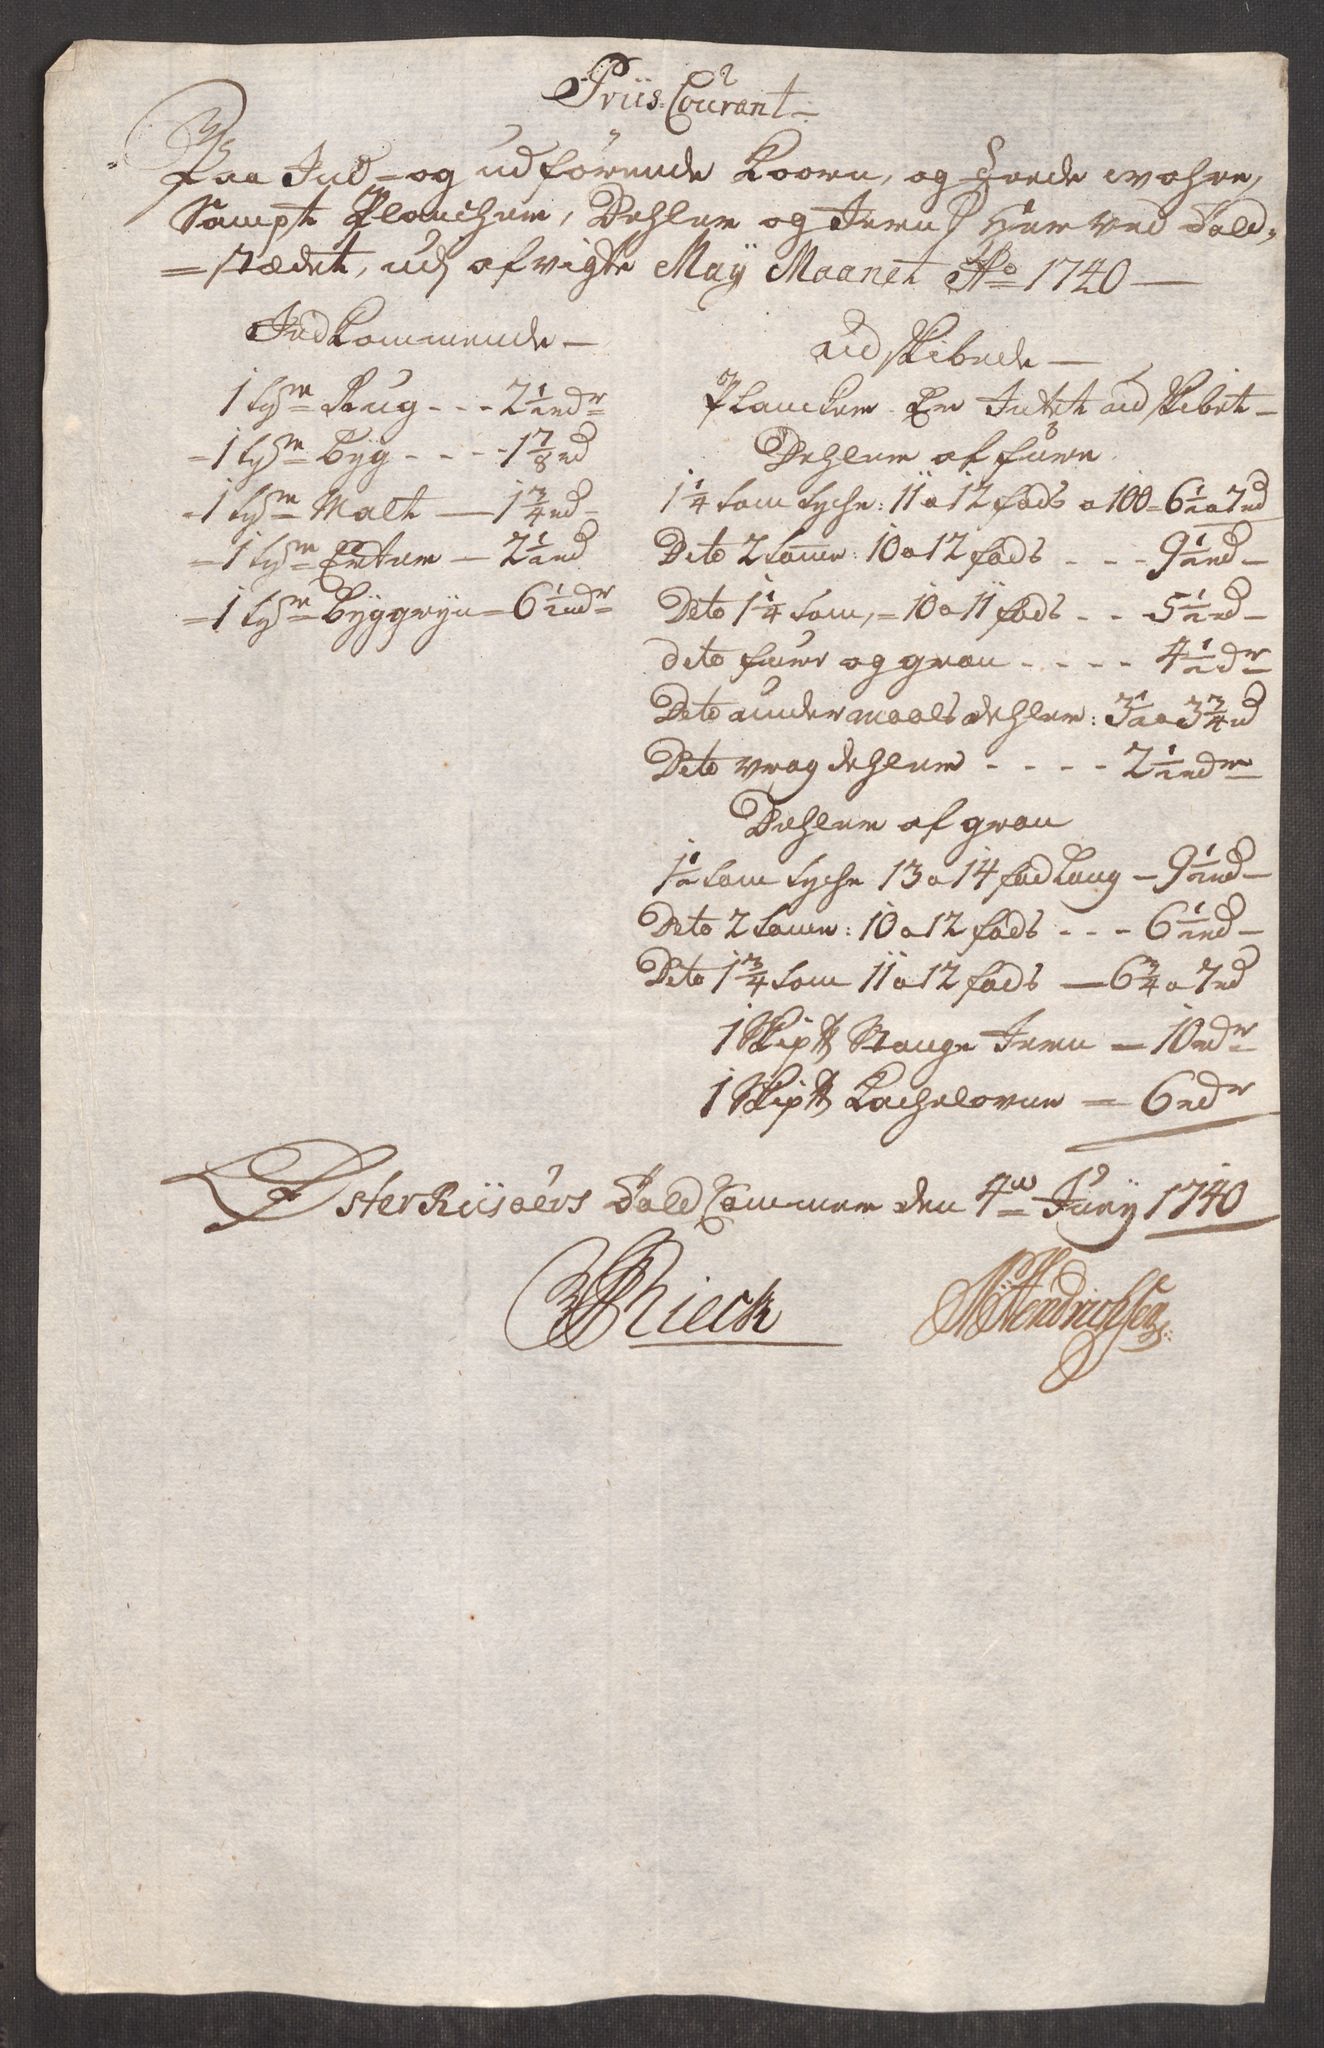 Priis-Courant-
Paa Ind- og udförende Koorn, og Fede wahre,
Sampt Planchem, Dehlem og Jern Her ved Told,
=stædet, udj afvigte Maÿ Maanet Ao 1740 —
Indkommende —
1 tøn Rug - - - 2 1/2 rdr
= 1 tøn byg - - - - 1 7/8 rd
= 1 tøn Malt — 1 3/4 rd -
= 1 tøn Erter — 2 1/2 rd
= 1 tøn byggryn = 6 1/2 rdr
udskibede —
Plancker. Er Intet udskibet —
Dehler af furu
1 1/4 tom tyche: 11 a 12 fods a 100 = 6 1/2 a 7 rd
Dito 2 tomr: 10 a 12 fods - - - 9 1/2 rd —
Dito 1 1/4 tom, = 10 a 11 fods - - 5 1/2 rd —
dito furu og gran - - - - 4 1/2 dr
Dito undermaals dehler: 3 1/2 a 3 3/4 rd
Dito vragdehler - - - - 2 1/2 rdr
Dehler af gran
1 1/2 tom tyche 13 a 14 fod lang — 9 1/2 rd —
Dito 2 tomr: 10 a 12 fods - - - 6 1/2 rd —
Dito 1 3/4 tom 11 a 12 fods — 6 3/4 a 7 rd
1 Skip℔ Stange Jern — 10 rdr
1 Skip℔ Kachelovne = 6 rdr
Øster Riisøers Told Cammer den 4de Junÿ 1740
Rieck
Hendrichsen